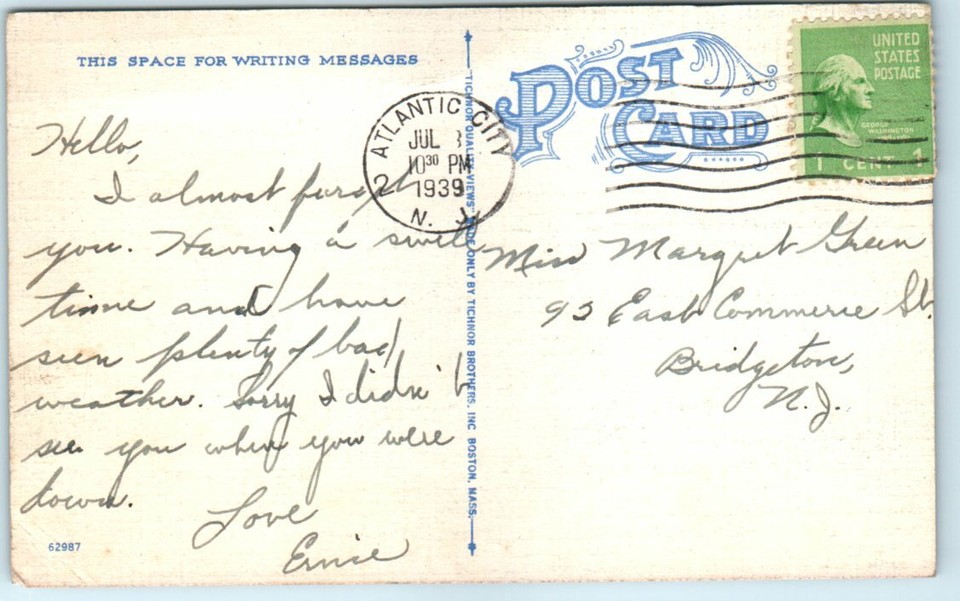 THIS SPACE FOR WRITING MESSAGES
POST CARD
UNITED
STATES
POSTAGE
GEORGE
WASHINGTON
1 CENT 1
ATLANTIC CITY
2
JUL
10 30 PM
1939
N. J.
Hello,
I almost forgot
you. Having a swell
time and have
seen plenty of bad
weather. Sorry I didn't
see you when you were
down.
Love
Ernie
62987
"TICHNOR QUALITY VIEWS" MADE ONLY BY TICHNOR BROTHERS, INC BOSTON, MASS.
Miss Margret Green
93 East Commerce St.
Bridgeton,
N.J.